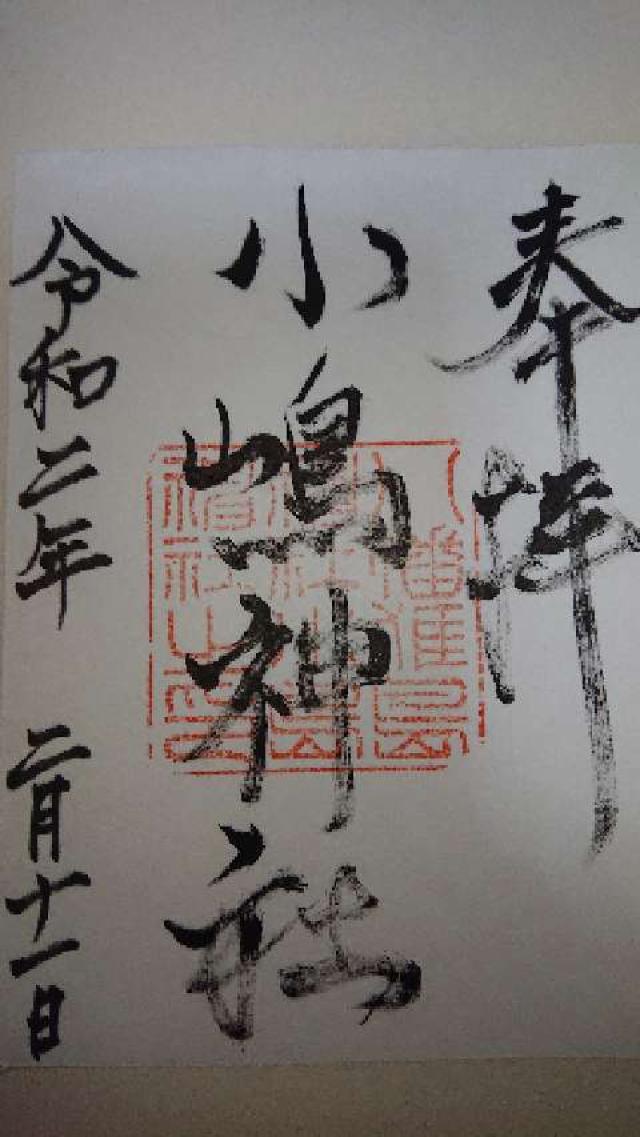 奉拝
小嶋神社
令和二年 二月十一日